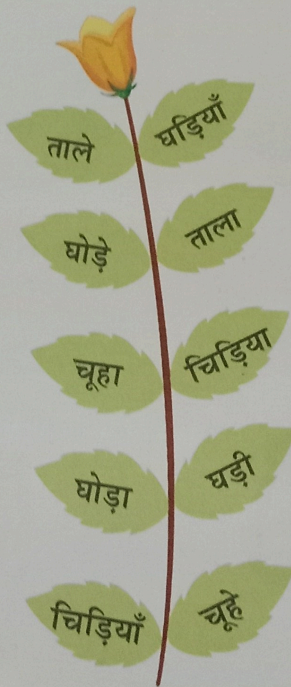 ताले
घड़ियाँ
घोड़े
ताला
चूहा
चिड़िया
घोड़ा
घड़ी
चिड़ियाँ
चूहे